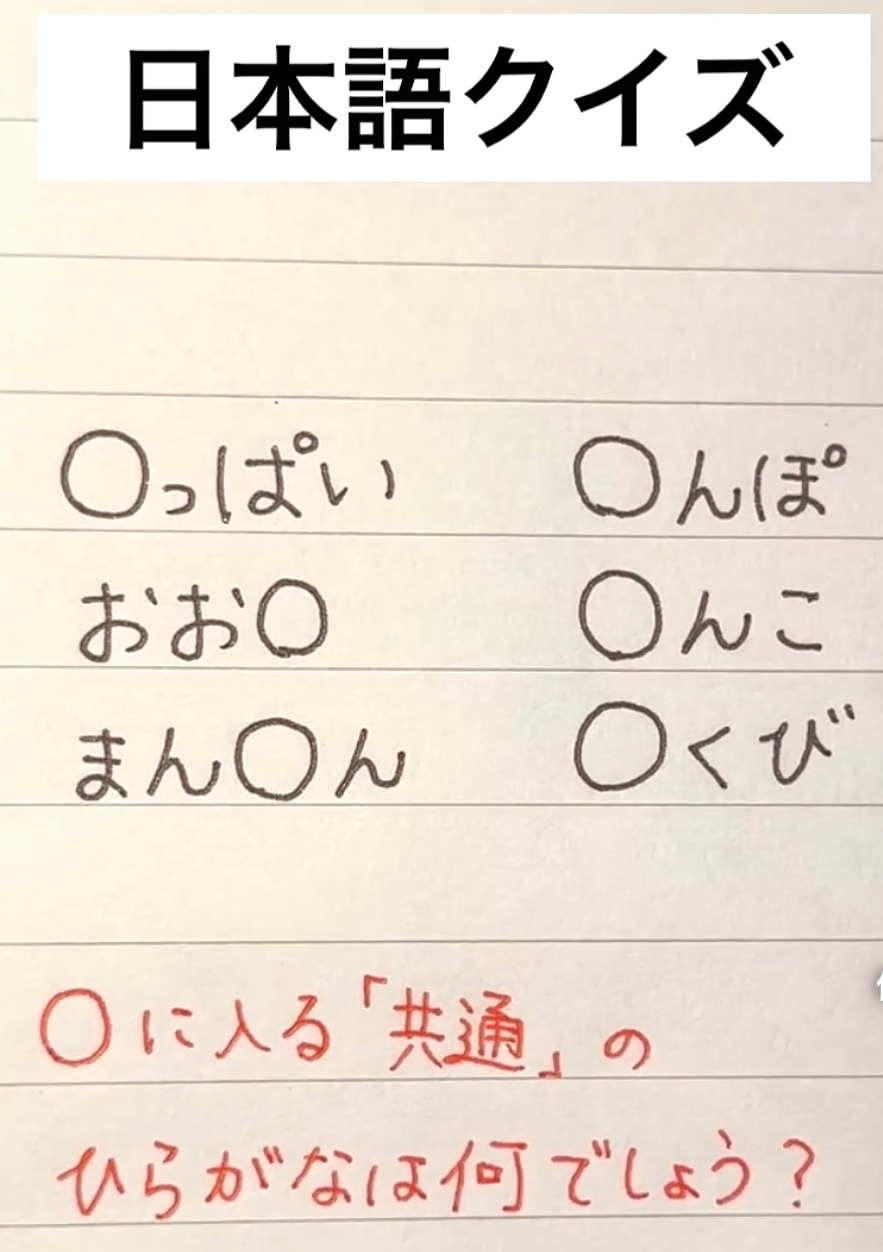 日本語クイズ
〇っぱい 〇んぽ
おお〇 〇んこ
まん〇ん 〇くび
〇に入る「共通」の
ひらがなは何でしょう？